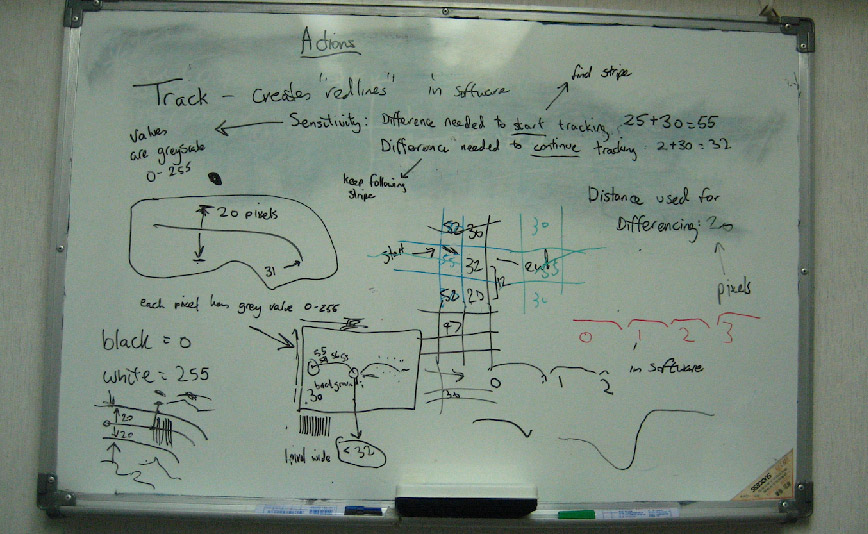 Actions
find stripe
Track - creates "redlines" in software
Sensitivity: Difference needed to start tracking. 25+30=55
Difference needed to continue tracking 2+30=32
values
are greyscale
0-255
keep following
stripe
Distance used for
Differencing: 20
pixels
20 pixels
31
start
52 30 30
55 32 end 55
12
52 20 30
47
each pixel has grey value 0-255
black = 0
white = 255
0 1 2 3
in software
0 1 2
55
30
30
20
20
1 pixel wide
< 32